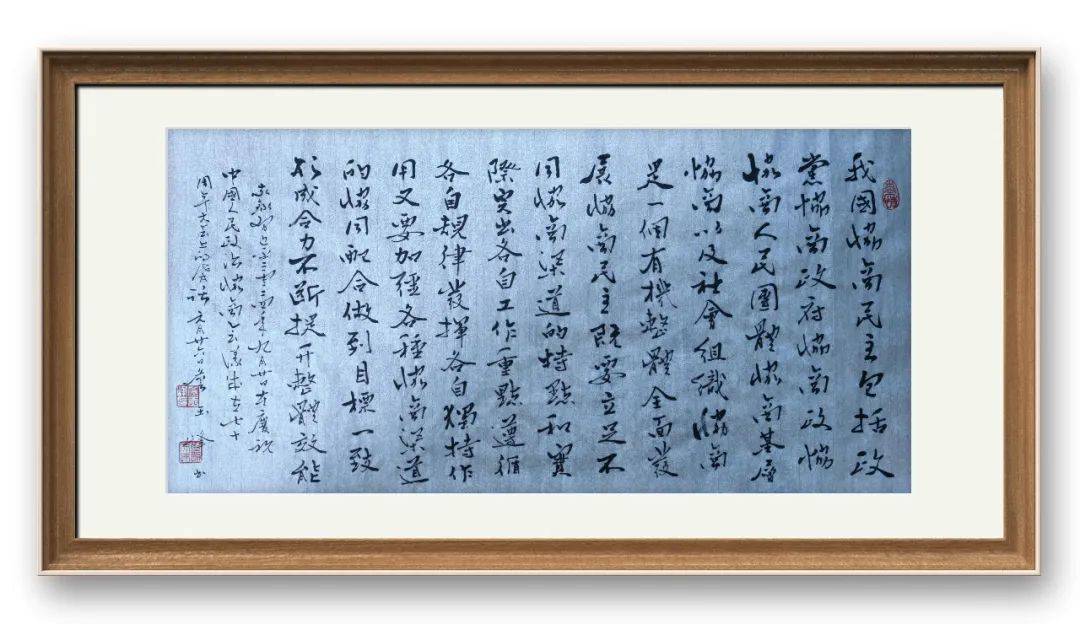 我國協商民主包括政
黨協商政府協商政協
協商人民團體協商基層
協商以及社會組織協商
是一個有機整體全面發
展協商民主既要立足不
同協商渠道的特點和實
際突出各自工作重點遵循
各自規律發揮各自獨特作
用又要加强各種協商渠道
的協同配合做到目標一致
形成合力不斷提升整體效能
二零二四年九月廿日在慶祝
中國人民政治協商會議成立七十
周年大會上的講話